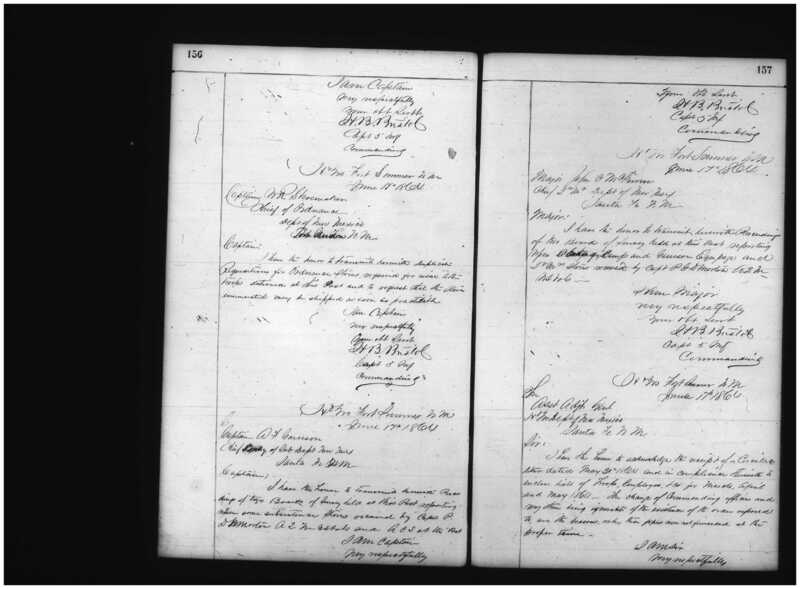 156
I am Captain
Very respectfully
Your obt Servt
H. B. Bristol
Capt 5 Inf
Commanding
Hd Qrs Fort Sumner N M
June 17th 1864
Captain W R Shoemaker
Chief of Ordnance
Dept of New Mexico
Fort Union N. M.
Captain:
I have the honor to transmit herewith duplicate
Requisitions for Ordnance Stores, required for issue to the
troops stationed at this Post and to request that the Stores
enumerated may be shipped as soon as practicable
I am Captain
Very respectfully
Your obt Servt
H. B. Bristol
Capt 5 Inf
Commanding
Hd Qrs Fort Sumner N M
June 17th 1864
Captain A F Garrison
Chief of Sub Dept New Mex
Santa Fe N M
Captain;
I have the honor to transmit herewith Procee
dings of two Boards of Survey held at this Post reporting
upon some subsistence Stores received by Capt P.
A Q M and A C S at this Post
I am Captain
Very respectfully
157
Your Obt Servt
H. B. Bristol
Capt 5 Inf
Commanding
Hd Qrs Fort Sumner N M
June 17th 1864
Major John C McFerran
Chief Q. M. Dept of New Mex
Santa Fe N. M.
Major:
I have the honor to transmit herewith Proceedings
of the Board of Survey held at this Post reporting
upon Camp and Garrison Equipage and
Q M Stores received by Capt
I am Major
Very respectfully
Your obt Servt
H. B. Bristol
Capt 5 Inf
Commanding
Hd Qrs Fort Sumner N M
June 17th 1864
To
Asst Adjt Genl
Hd Qrs Dept of New Mexico
Santa Fe N. M.
Sir:
I have the honor to acknowledge the receipt of a Circular
letter dated May 30th 1864 and in compliance therewith to
enclose lists of Troops, Employees &c for March, April
and May 1864. The change of Commanding officers and
my there being ignorant of the existence of the order required
to are the reasons why these papers were not forwarded at the
proper time.
I am Sir
Very respectfully